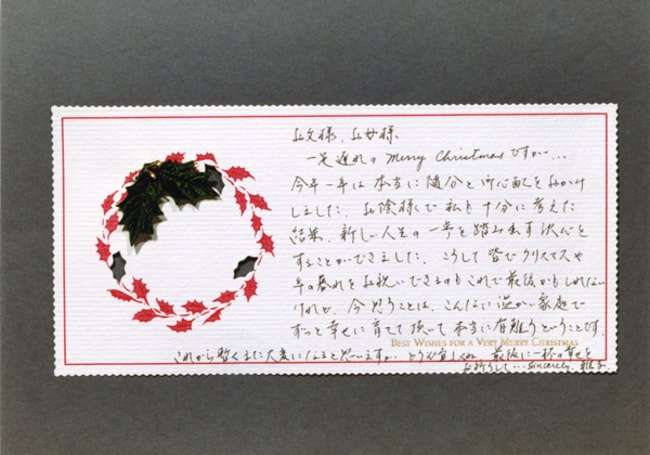 お父様、お母様
一足遅れの Merry Christmas ですが…
今年一年は本当に随分と御心配をおかけ
しました。お陰様で私も十分に考えた
結果、新しい人生の一歩を踏み出す決心を
することができました。こうして皆でクリスマスや
年の暮れをお祝いできるのもこれで最後かもしれない
けれど、今思うことは、こんなに温かい家庭で
ずっと幸せに育てて頂いて本当に有難うということです。
BEST WISHES FOR A VERY MERRY CHRISTMAS
これから暫くまた大変になると思いますが、どうぞ宜しくね。最後に一杯の幸せを
お祈りして… Sincerely, 雅子